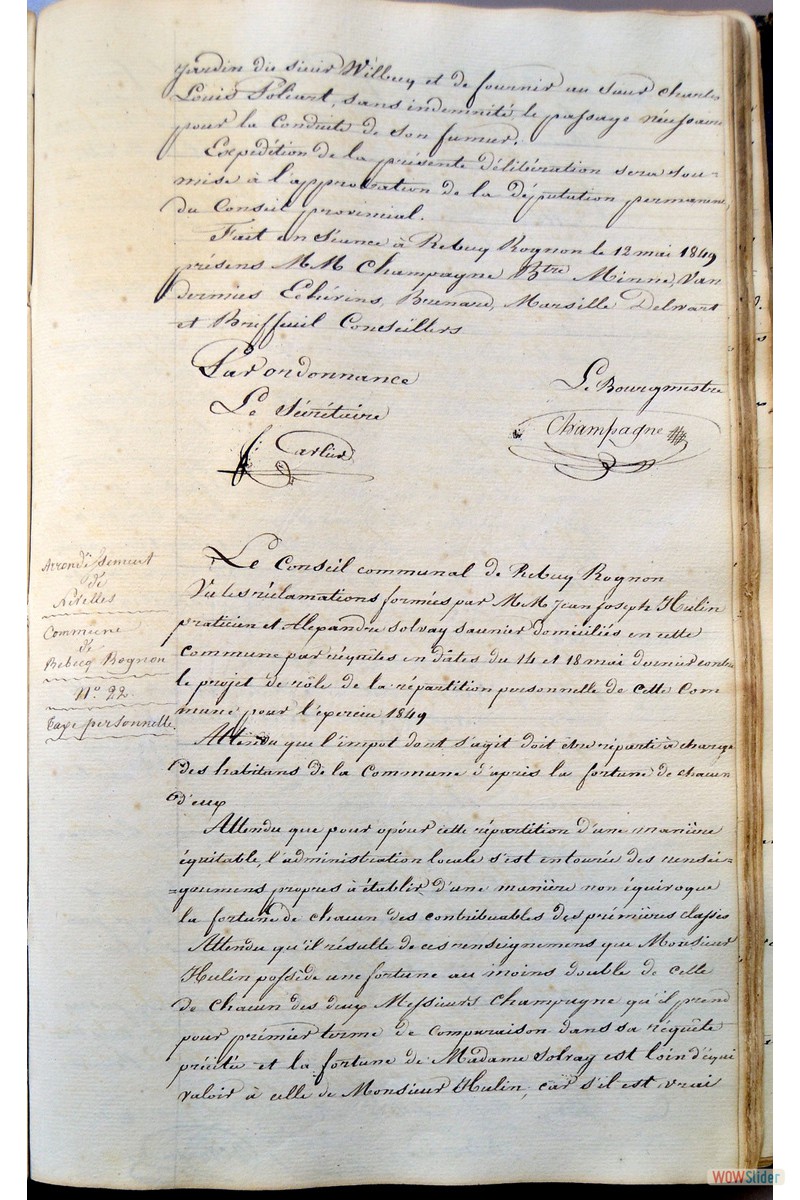 jardin du sieur Willecq et de fournir au sieur Charles
Louis Poliart, sans indemnité le passage nécessaire
pour la conduite de son fumier.
Expédition de la présente délibération sera sou-
mise à l'approbation de la députation permanente
du Conseil provincial.
Fait en Séance à Rebecq Rognon le 12 mai 1849
présens MM Champagne Btre Minne, Van
dermues Echévins, Brenard, Marsille Delwart
et Breffeuil Conseillers
Par ordonnance
Le Sécrétaire
Carlier
Le Bourgmestre
Champagne
Arrondissement
de
Nivelles
Commune
de
Rebecq Rognon
N° 22.
Taxe personnelle.
Le Conseil communal de Rebecq Rognon
Vu les réclamations formées par MM Jean Joseph Hulin
praticien et Alexandre Solvay saunier domiciliés en cette
commune par réquêtes en dates du 14 et 18 mai dernier contre
le projet de rôle de la répartition personnelle de cette Com
mune pour l'exercice 1849
Attendu que l'impot dont s'agit doit être réparti à charge
des habitans de la Commune d'après la fortune de chacun
d'eux
Attendu que pour opérer cette répartition d'une manière
équitable, l'administration locale s'est entourée des rensei-
=gnemens propres à établir d'une manière non équivoque
la fortune de chacun des contribuables des prémières classes
Attendu qu'il résulte de ces renseignemens que Monsieur
Hulin possède une fortune au moins double de celle
de chacun des deux Messieurs Champagne qu'il prend
pour prémier terme de comparaison dans sa réquête
précitée et la fortune de Madame Solvay est loin d'équi
valoir à celle de Monsieur Hulin, car s'il est vrai
WOWSlider